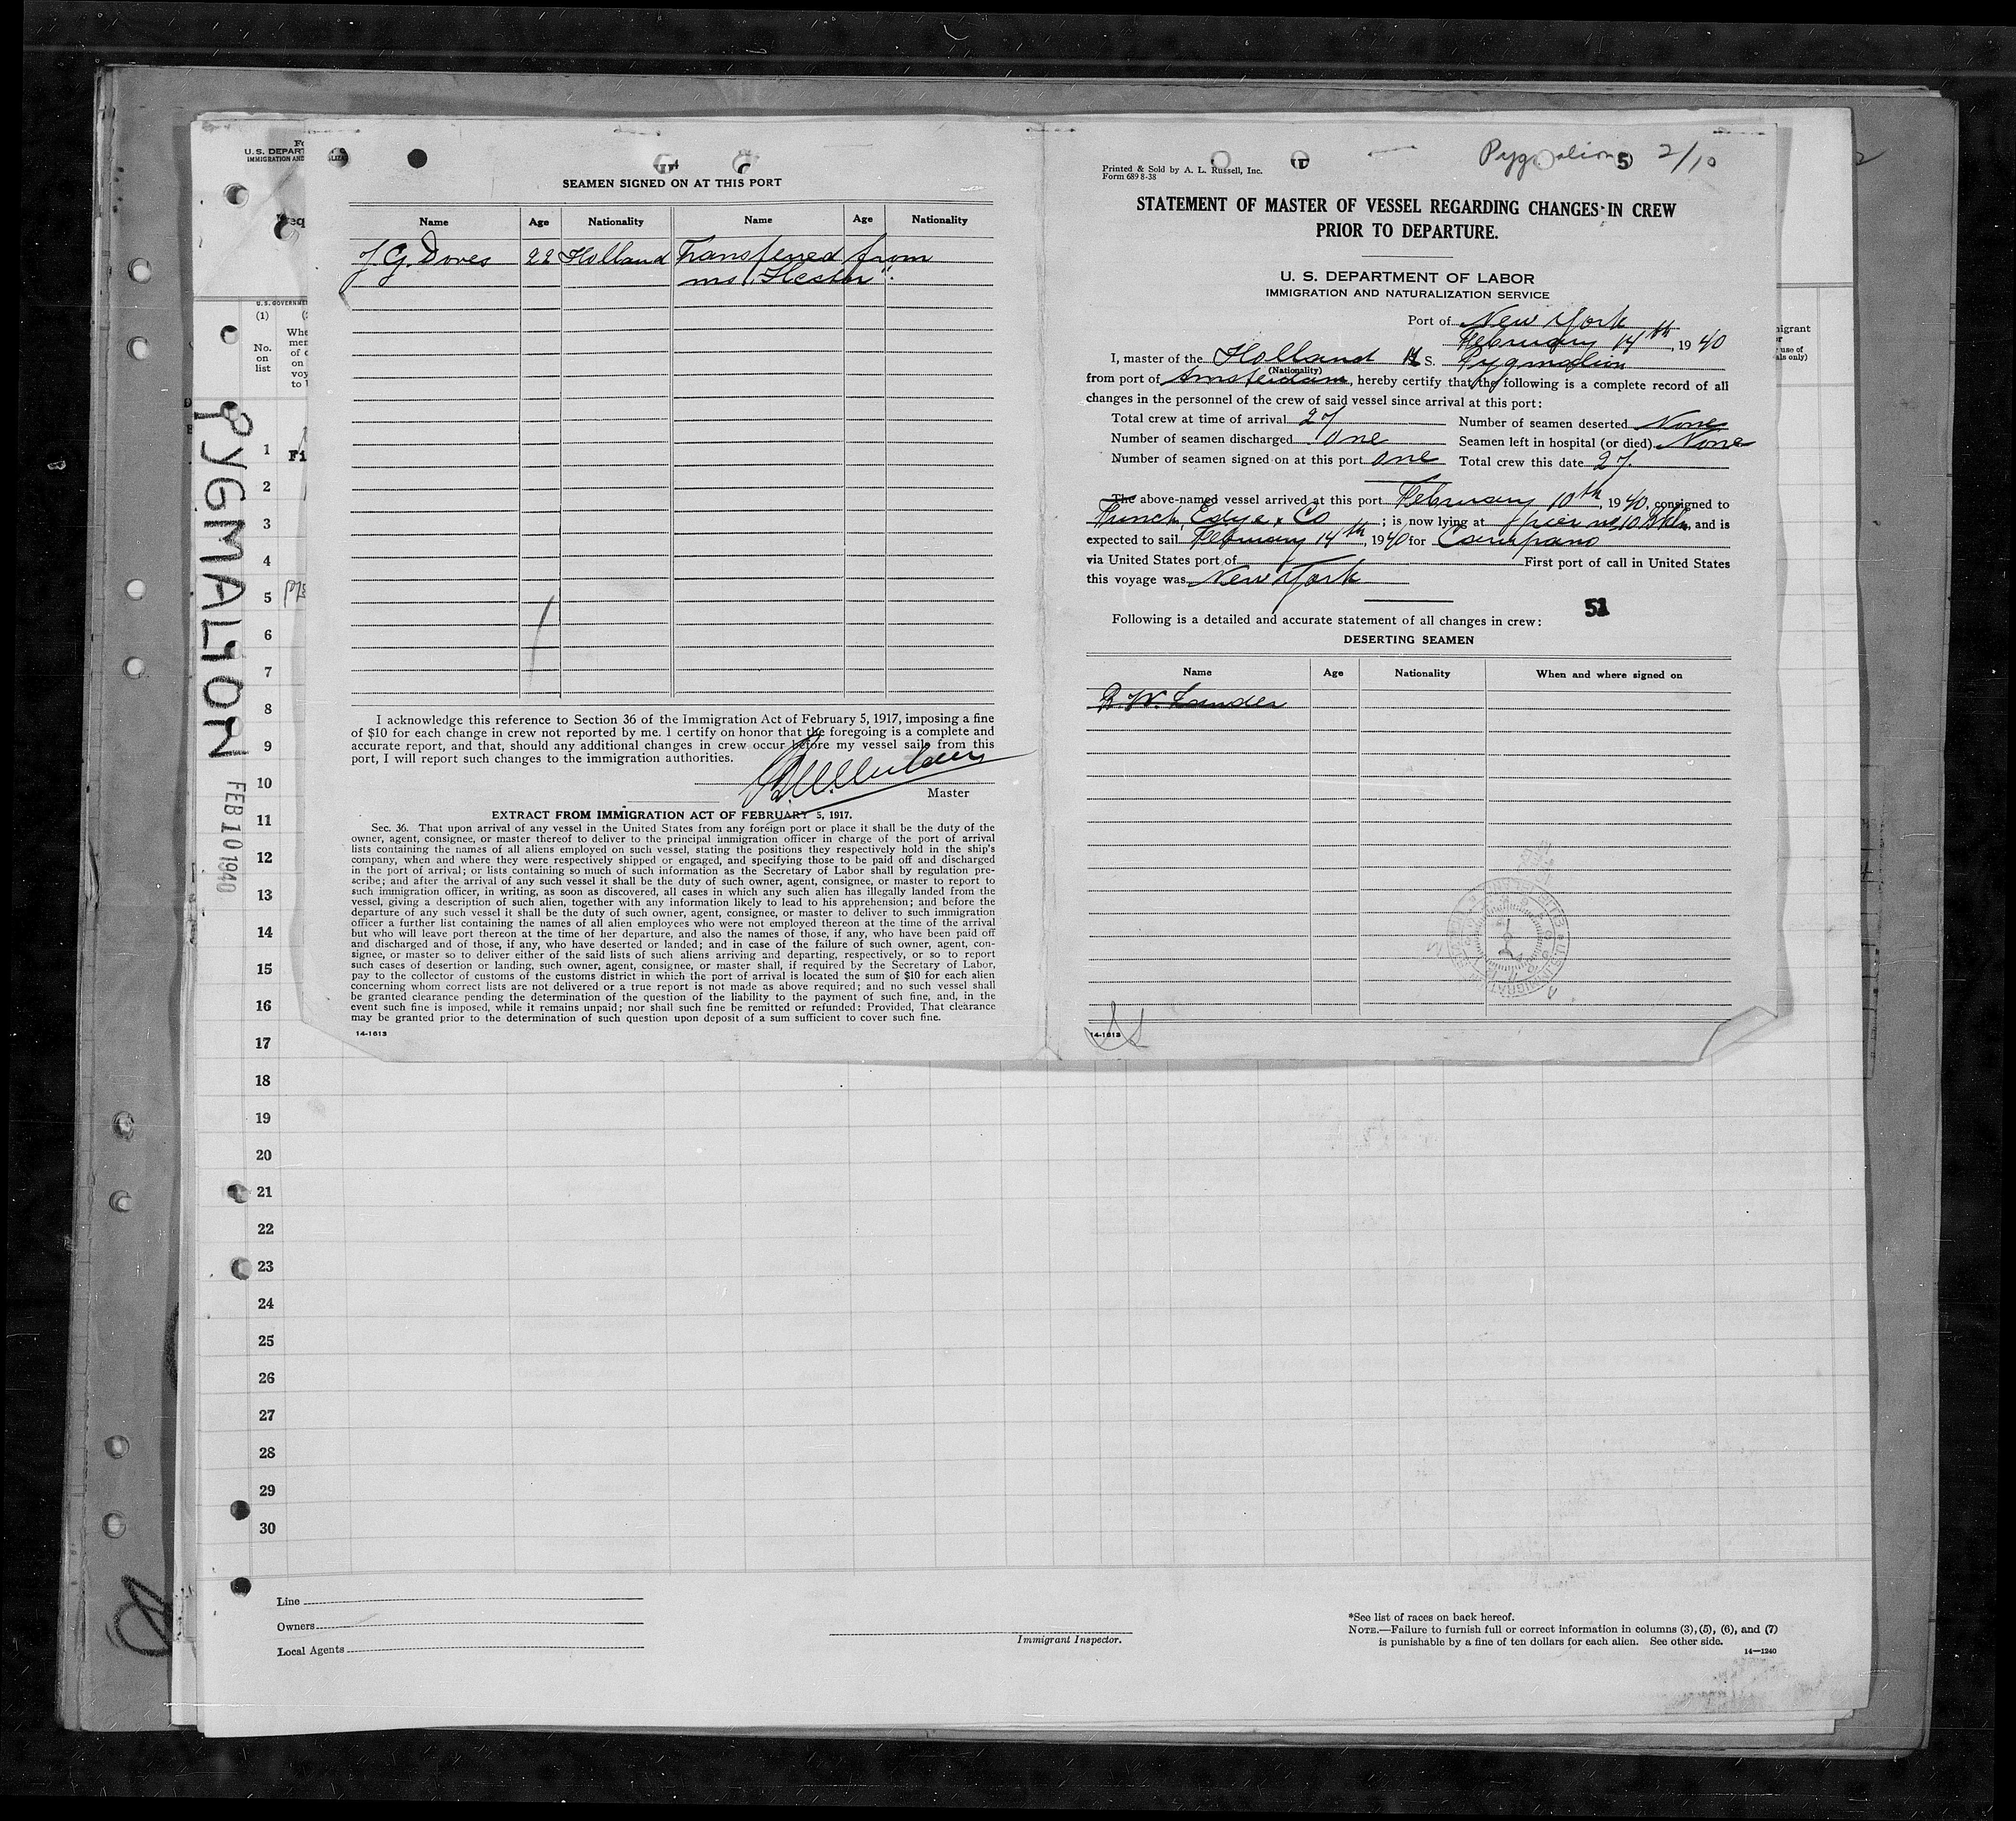 SEAMEN SIGNED ON AT THIS PORT
Name Age Nationality Name Age Nationality
J. G. Doves 22 Holland Transferred from
ms "Hestor".
I acknowledge this reference to Section 36 of the Immigration Act of February 5, 1917, imposing a fine
of $10 for each change in crew not reported by me. I certify on honor that the foregoing is a complete and
accurate report, and that, should any additional changes in crew occur before my vessel sails from this
port, I will report such changes to the immigration authorities.
Master
EXTRACT FROM IMMIGRATION ACT OF FEBRUARY 5, 1917.
Sec. 36. That upon arrival of any vessel in the United States from any foreign port or place it shall be the duty of the
owner, agent, consignee, or master thereof to deliver to the principal immigration officer in charge of the port of arrival
lists containing the names of all aliens employed on such vessel, stating the positions they respectively hold in the ship's
company, when and where they were respectively shipped or engaged, and specifying those to be paid off and discharged
in the port of arrival; or lists containing so much of such information as the Secretary of Labor shall by regulation pre-
scribe; and after the arrival of any such vessel it shall be the duty of such owner, agent, consignee, or master to report to
such immigration officer, in writing, as soon as discovered, all cases in which any such alien has illegally landed from the
vessel, giving a description of such alien, together with any information likely to lead to his apprehension; and before the
departure of any such vessel it shall be the duty of such owner, agent, consignee, or master to deliver to such immigration
officer a further list containing the names of all alien employees who were not employed thereon at the time of the arrival
but who will leave port thereon at the time of her departure, and also the names of those, if any, who have been paid off
and discharged and of those, if any, who have deserted or landed; and in case of the failure of such owner, agent, con-
signee, or master so to deliver either of the said lists of such aliens arriving and departing, respectively, or so to report
such cases of desertion or landing, such owner, agent, consignee, or master shall, if required by the Secretary of Labor,
pay to the collector of customs of the customs district in which the port of arrival is located the sum of $10 for each alien
concerning whom correct lists are not delivered or a true report is not made as above required; and no such vessel shall
be granted clearance pending the determination of the question of the liability to the payment of such fine, and, in the
event such fine is imposed, while it remains unpaid; nor shall such fine be remitted or refunded: Provided, That clearance
may be granted prior to the determination of such question upon deposit of a sum sufficient to cover such fine.
14-1613
Pygmalion 5 2/10
Printed & Sold by A. L. Russell, Inc.
Form 689 8-38
STATEMENT OF MASTER OF VESSEL REGARDING CHANGES IN CREW
PRIOR TO DEPARTURE.
U. S. DEPARTMENT OF LABOR
IMMIGRATION AND NATURALIZATION SERVICE
Port of New York
February 14th, 1940
I, master of the Holland M S. Pygmalion
(Nationality)
from port of Amsterdam, hereby certify that the following is a complete record of all
changes in the personnel of the crew of said vessel since arrival at this port:
Total crew at time of arrival 27 Number of seamen deserted None
Number of seamen discharged one Seamen left in hospital (or died) None
Number of seamen signed on at this port one Total crew this date 27.
The above-named vessel arrived at this port February 10th, 1940, consigned to
Funch, Edye & Co; is now lying at pier no 10 Bkln, and is
expected to sail February 14th, 1940 for Carupano
via United States port of First port of call in United States
this voyage was New York
51
Following is a detailed and accurate statement of all changes in crew:
DESERTING SEAMEN
Name Age Nationality When and where signed on
14-1613
U. S. DEPART
IMMIGRATION AND
(1)
No.
on
list
PYGMALION
FEB 10 1940
1
2
3
4
5
6
7
8
9
10
11
12
13
14
15
16
17
18
19
20
21
22
23
24
25
26
27
28
29
30
Line
Owners
Local Agents
Immigrant Inspector.
*See list of races on back hereof.
NOTE.—Failure to furnish full or correct information in columns (3), (5), (6), and (7)
is punishable by a fine of ten dollars for each alien. See other side.
14—1240